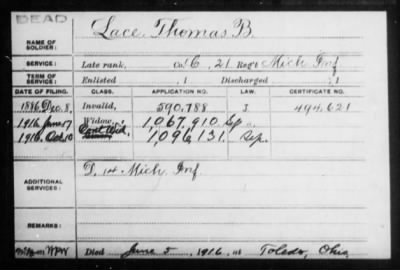 DEAD
NAME OF SOLDIER: Lace, Thomas B.
SERVICE: Late rank, Co. C, 21 Reg't Mich Inf
TERM OF SERVICE: Enlisted , 1 Discharged , 1
DATE OF FILING. CLASS. APPLICATION NO. LAW. CERTIFICATE NO.
1886 Dec. 8, Invalid, 590,788 494,621
1916 June 17 Widow, 1,067,910
1916 Oct 10 Cont Wid. 1,096,131.
ADDITIONAL SERVICES: D. 1st Mich. Inf.
REMARKS:
Died June 5, 1916, at Toledo, Ohio